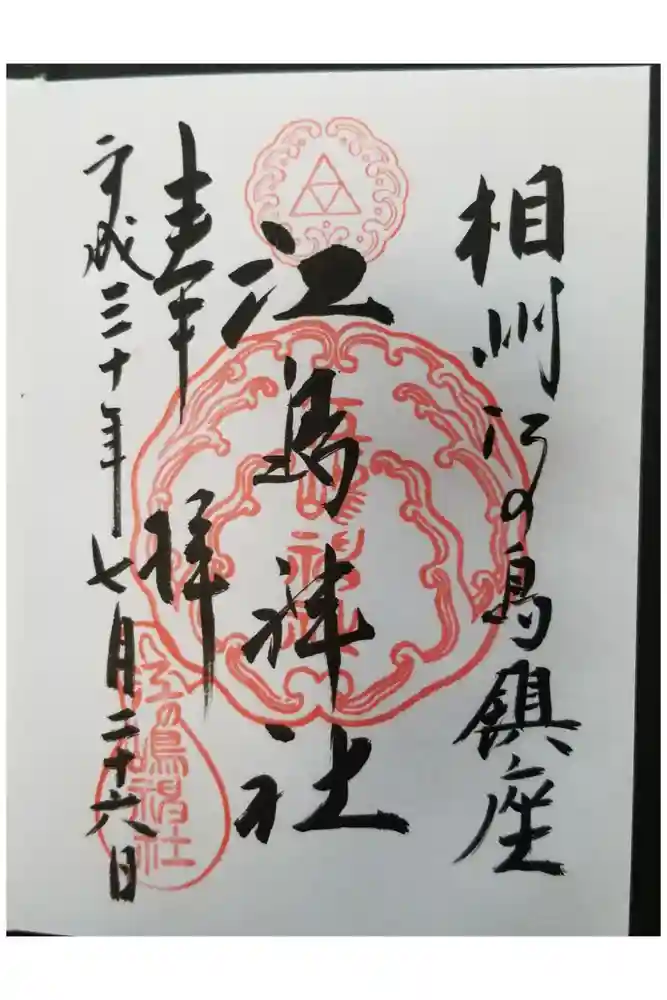 相州江の島鎮座
江島神社
奉拝
平成三十年七月二十六日
江の嶋神社